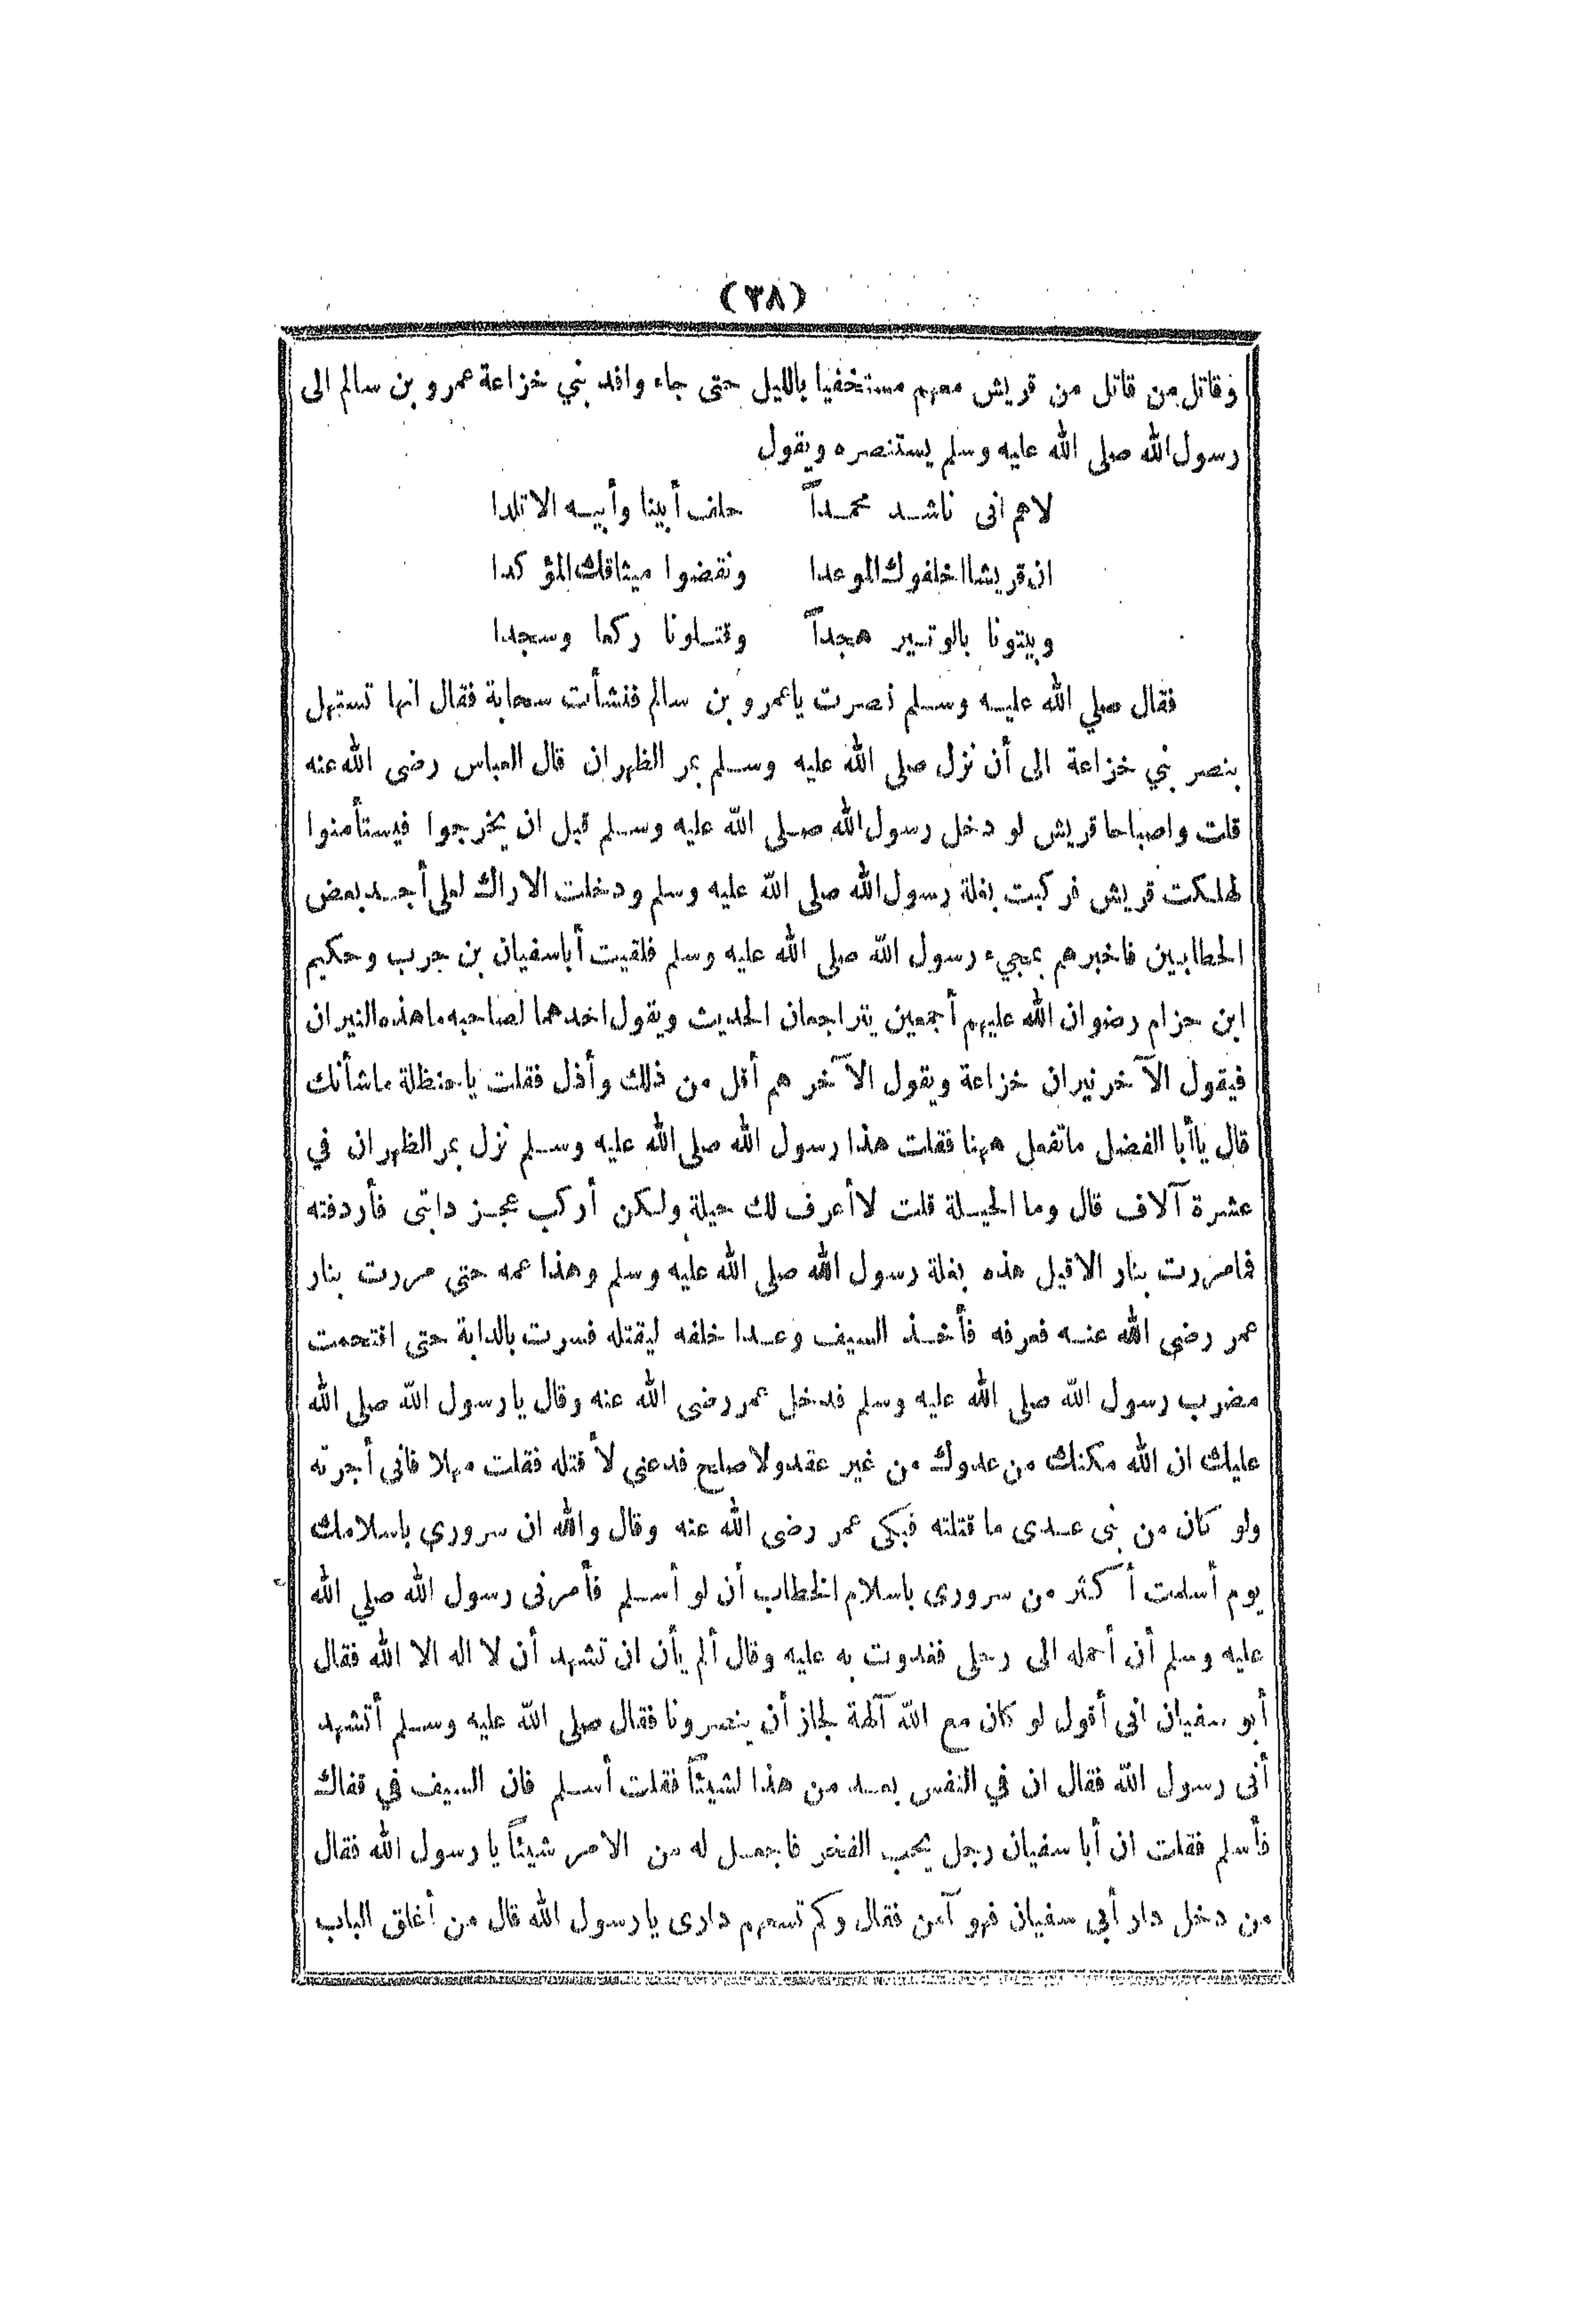 (٣٨)
وقاتل من قاتل من قريش معهم مستخفيا بالليل حتى جاء وافد بني خزاعة عمرو بن سالم الى
رسول الله صلى الله عليه وسلم يستنصره ويقول
لاهم انى ناشد محمداً حلف أبينا وأبيه الاتلدا
ان قريشا اخلفوك الموعدا ونقضوا ميثاقك المؤكدا
وبيتونا بالوتير هجداً وقتلونا ركعا وسجدا
فقال صلي الله عليه وسلم نصرت ياعمرو بن سالم فنشأت سحابة فقال انها تستهل
بنصر بني خزاعة الى أن نزل صلى الله عليه وسلم بمر الظهران قال العباس رضى الله عنه
قلت واصباحا قريش لو دخل رسول الله صلى الله عليه وسلم قبل ان يخرجوا فيستأمنوا
لهلكت قريش فركبت بغلة رسول الله صلى الله عليه وسلم ودخلت الاراك لعلى أجد بعض
الحطابين فاخبرهم بمجيء رسول الله صلى الله عليه وسلم فلقيت أباسفيان بن حرب وحكيم
ابن حزام رضوان الله عليهم أجمعين يتراجعان الحديث ويقول احدهما لصاحبه ماهذه النيران
فيقول الآخر نيران خزاعة ويقول الآخر هم أقل من ذلك وأذل فقلت ياحنظلة ماشأنك
قال ياأبا الفضل ماتفعل ههنا فقلت هذا رسول الله صلى الله عليه وسلم نزل بمر الظهران في
عشرة آلاف قال وما الحيلة قلت لاأعرف لك حيلة ولكن أركب عجز دابتى فأردفته
فمامررت بنار الاقيل هذه بغلة رسول الله صلى الله عليه وسلم وهذا عمه حتى مررت بنار
عمر رضي الله عنه فعرفه فأخذ السيف وعدا خلفه ليقتله فسرت بالدابة حتى اقتحمت
مضرب رسول الله صلى الله عليه وسلم فدخل عمر رضى الله عنه وقال يارسول الله صلى الله
عليك ان الله مكنك من عدوك من غير عقد ولا صلح فدعني لأقتله فقلت مهلا فانى أجرته
ولو كان من بنى عدى ماقتلته فبكى عمر رضى الله عنه وقال والله ان سروري باسلامك
يوم أسلمت أكثر من سرورى باسلام الخطاب أن لو أسلم فأمرنى رسول الله صلي الله
عليه وسلم أن أحمله الى رحلى فغدوت به عليه وقال ألم يأن ان تشهد أن لا اله الا الله فقال
أبو سفيان انى أقول لو كان مع الله آلهة لجاز أن ينصرونا فقال صلى الله عليه وسلم أتشهد
أنى رسول الله فقال ان في النفس بعد من هذا لشيئاً فقلت أسلم فان السيف في قفاك
فأسلم فقلت ان أبا سفيان رجل يحب الفخر فاجعل له من الامر شيئاً يا رسول الله فقال
من دخل دار أبي سفيان فهو آمن فقال وكم تسعهم دارى يارسول الله قال من أغلق الباب